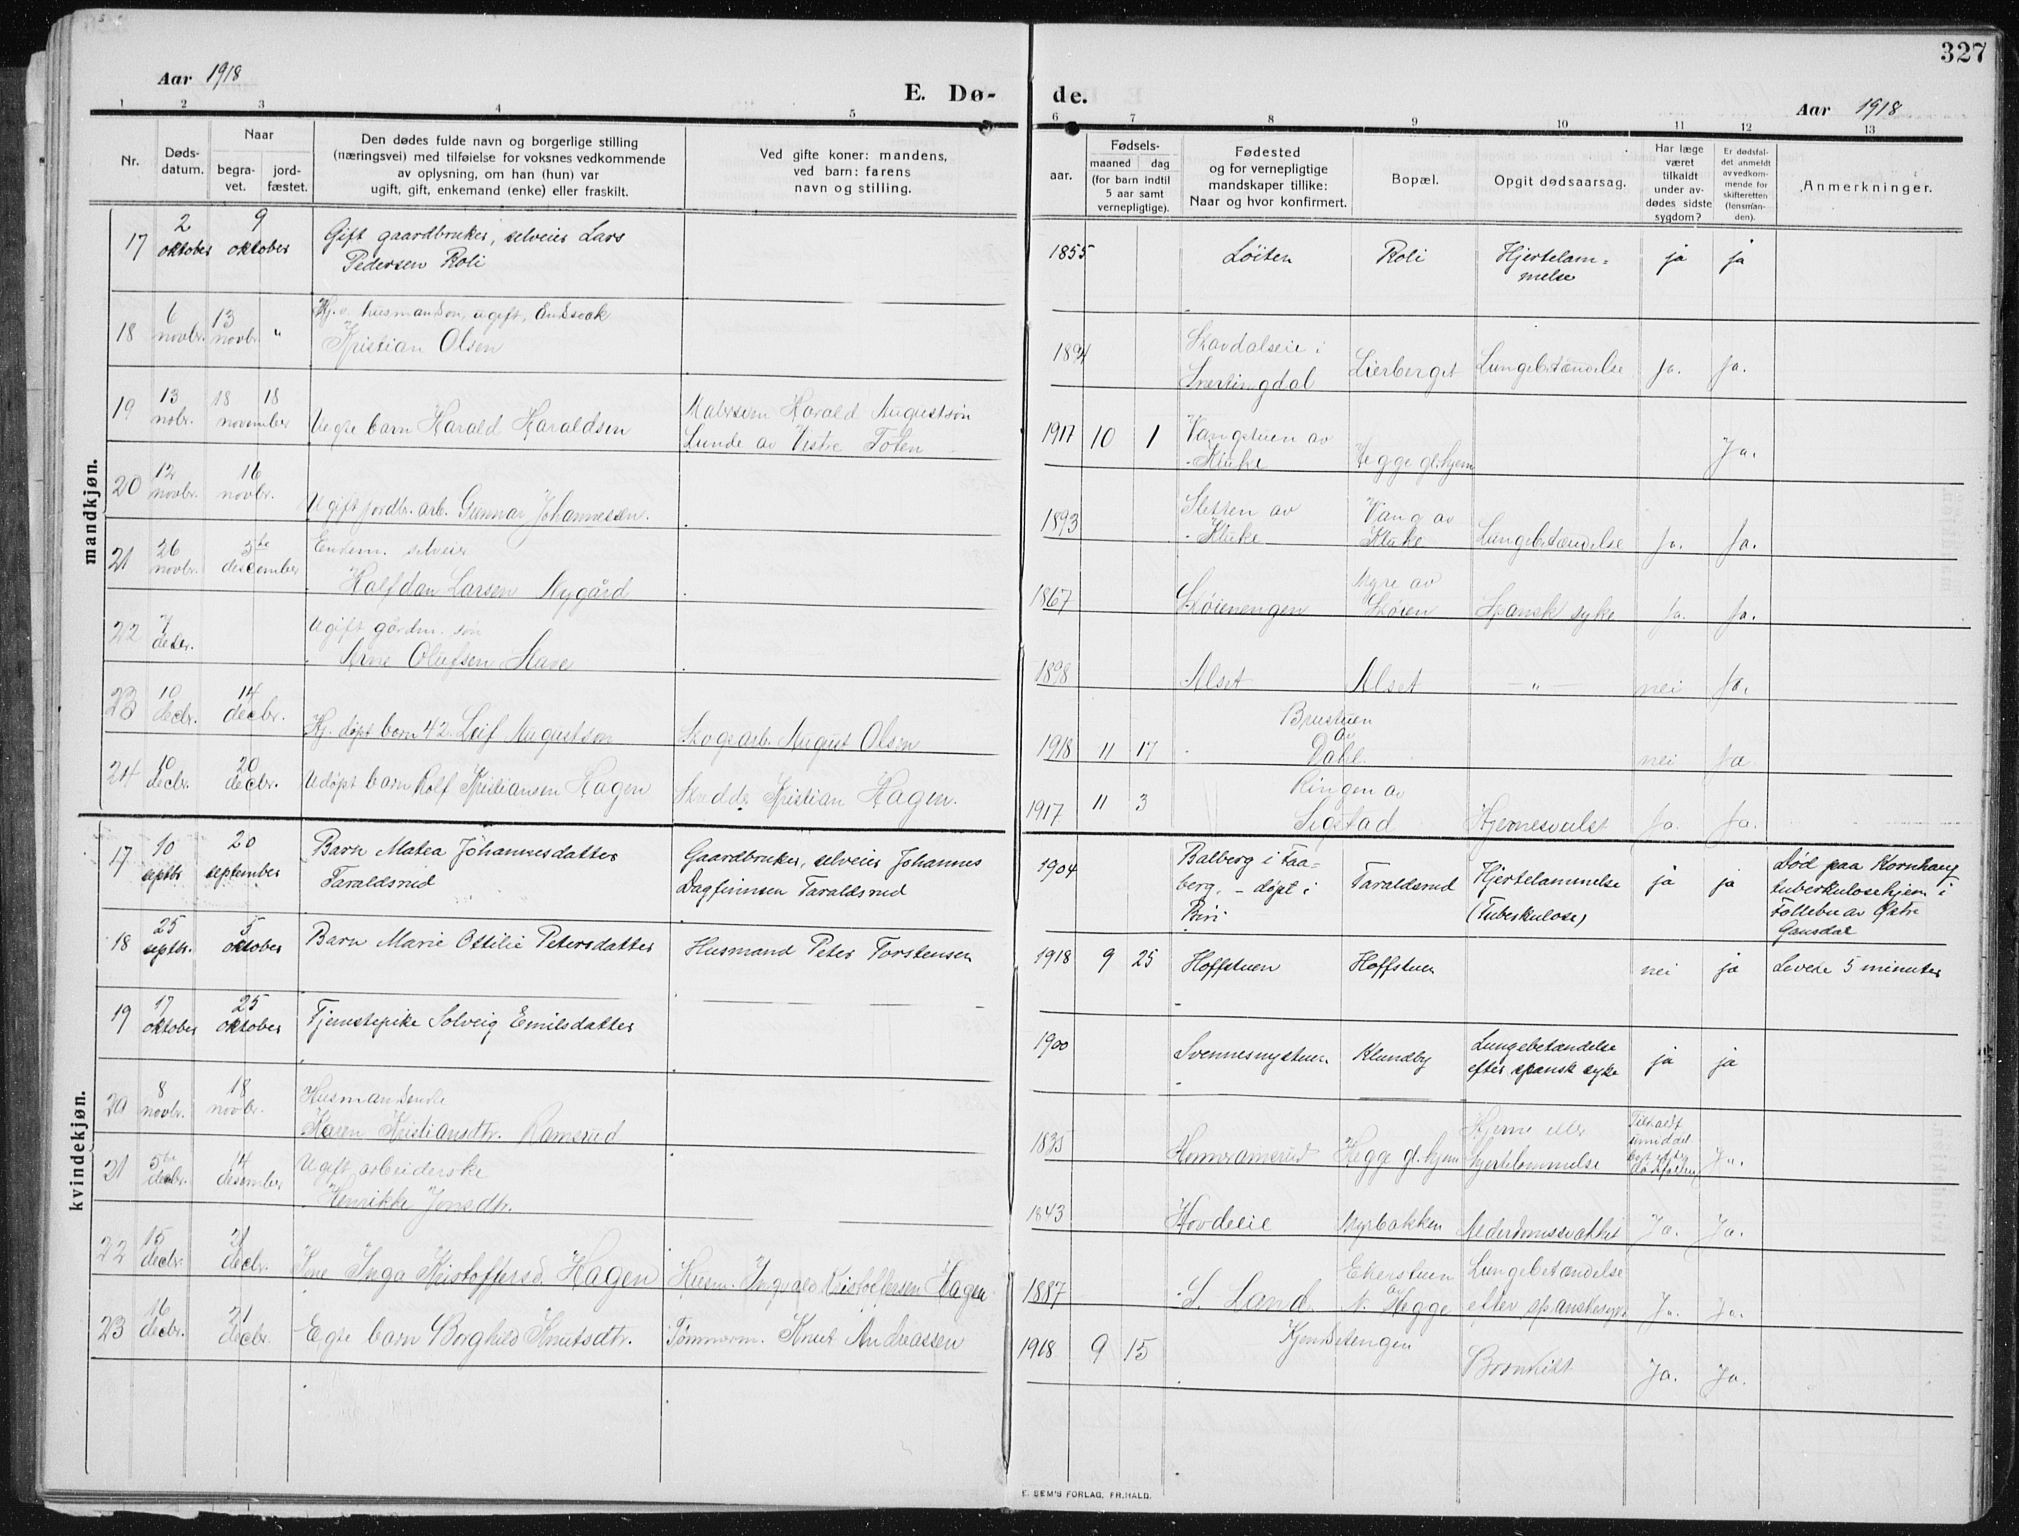 327
Aar 1918
E. Dø-
de.
Aar 1918
1 2 3 4 5 6 7 8 9 10 11 12 13
Nr.
Døds-
datum.
Naar
begra-
vet.
jord-
fæstet.
Den dødes fulde navn og borgerlige stilling
(næringsvei) med tilføielse for voksnes vedkommende
av oplysning, om han (hun) var
ugift, gift, enkemand (enke) eller fraskilt.
Ved gifte koner: mandens,
ved barn: farens
navn og stilling.
aar.
Fødsels-
maaned dag
(for barn indtil
5 aar samt
vernepligtige).
Fødested
og for vernepligtige
mandskaper tillike:
Naar og hvor konfirmert.
Bopæl.
Opgit dødsaarsag.
Har læge
været
tilkaldt
under av-
dødes sidste
sygdom?
Er dødsfal-
det anmeldt
av vedkom-
mende for
skifteretten
(lensman-
den).
Anmerkninger.
mandkjøn.
17 2 oktober 9 oktober Gift gaardbruker, selveier Lars
Pedersen Roli
1855 Løiten Roli Hjertelam=
melse ja ja
18 6 novbr. 13 novbr. " husmandsøn, ugift,
Kristian Olsen
1894 Skavdalseie i
Snertingdal Lierberget Lungebetændelse Ja. Ja.
19 13 nobr. 18 18 november Uegte barn Harald Haraldsen
Malersvn Harald Augustsøn
Lunde av Vestre Toten
1917 10 1 Vangstuen av
Kluke Hegge gl.hjem Ja.
20 12 novbr. 16 novbr. Ugift jordbr. arb. Gunnar Johannessen.
1893 Sletten av
Kluke Vang av
Kluke Lungebetændelse Ja. Ja.
21 26 novbr. 5te desember Enkem. selveier
Halfdan Larsen Nygård
1867 Skøienengen Myre av
Skøien Spansk syke Ja. Ja.
22 7 decbr. Ugift gårdm. søn
Arne Olufsen
1898 Alset Alset — " — nei Ja.
23 10 decbr. 14 decbr. Hj. døpt barn 42. Leif Augustson
Skogsarb. August Olsen
1918 11 17 Brustuen
av
Dahl nei Ja
24 10 decbr. 20 decbr. Udøpt barn Rolf Kristiansen Hagen
Skredder Kristian Hagen.
1917 11 3 Ringen av
Sigstad Hjernesvulst Ja. Ja.
kvindekjøn.
17 10 septbr 20 september Barn Matea Johannesdatter
Taraldsrud
Gaardbruker, selveier Johannes
Dagfinnsen Taraldsrud
1904 Balberg i Faa=
berg, - døpt i
Biri Taraldsrud Hjertelammelse
(Tuberkulose) ja ja Død paa Kornhaug
tuberkulosehjem i
Follebu av Østre
Gausdal
18 25 septbr. 5 oktober Barn Marie Ottilie Petersdatter
Husmand Peter Torstensen
1918 9 25 Hoffstuen Hoffstuen nei ja Levede 5 minuter
19 17 oktober 25 oktober Tjenestepike Solveig Emilsdatter
1900 Svennesnystuen Klundby Lungebetændelse
efter spansk syke ja ja
20 8 novbr. 18 novbr. Husmandsenke
Karen Kristiansdtr. Ramsrud
1835 Hegge gl. hjem Hjerne eller
hjertelammelse Tilkaldt
umiddel
bart efter
dødsfallet Ja.
21 5te decbr. 14 desember Ugift, arbeiderske
Henrikke Jonsdtr.
1843 Hovdeeie Myrbakken Alderdomssvakket Ja. Ja.
22 15 decbr. 21 decbr. Inga Kristoffersd. Hagen
Husm. Ingvald Kristoffersen Hagen
1887 S. Land Ekerstuen
av
N. Hegge Lungebetændelse
efter spanskesyke Ja. Ja.
23 16 decbr. 21 decbr. Egte barn Borghild Knutsdtr.
Tømmerm. Knut Andreassen
1918 9 15 Kjendstengen Ja. Ja.
E. SEM'S FORLAG, FR.HALD.